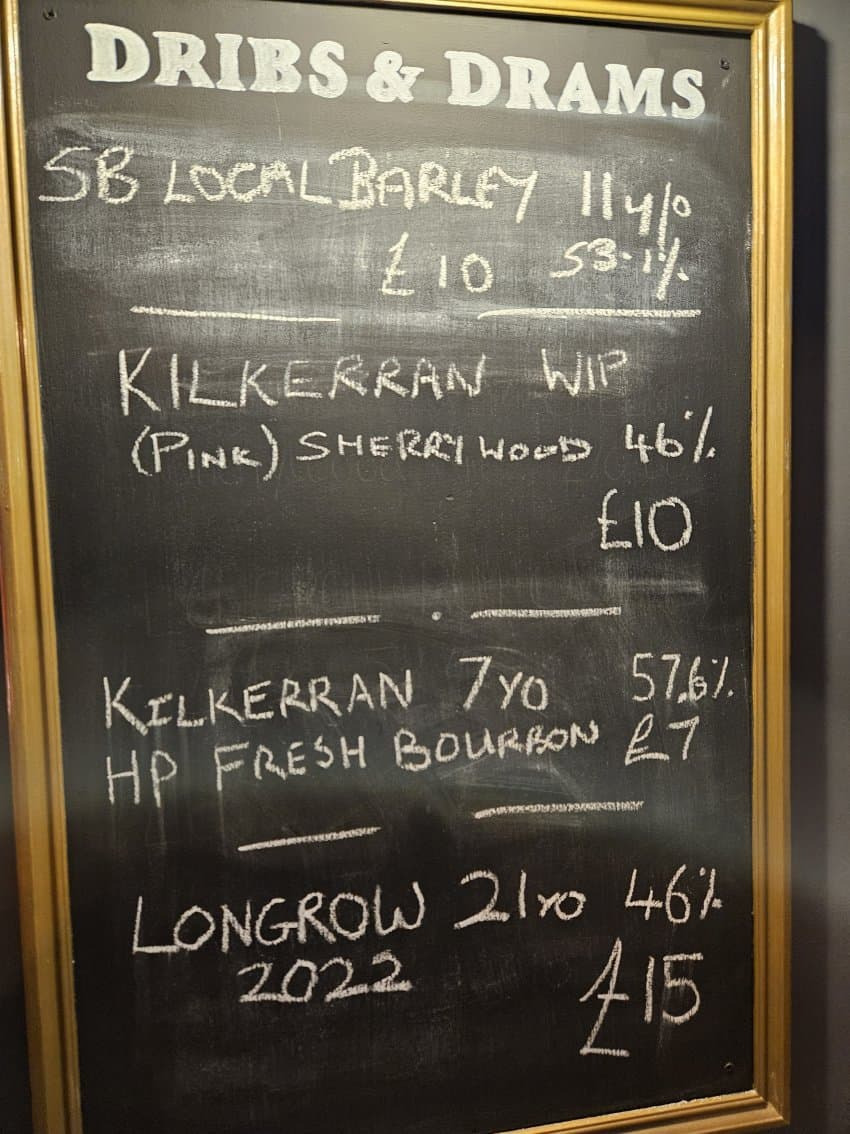 DRIBS & DRAMS
SB LOCAL BARLEY 11 y/o
£10 53.1%
KILKERRAN WIP
(PINK) SHERRY WOOD 46%
£10
KILKERRAN 7YO 57.6%
HP FRESH BOURBON £7
LONGROW 21YO 46%
2022 £15